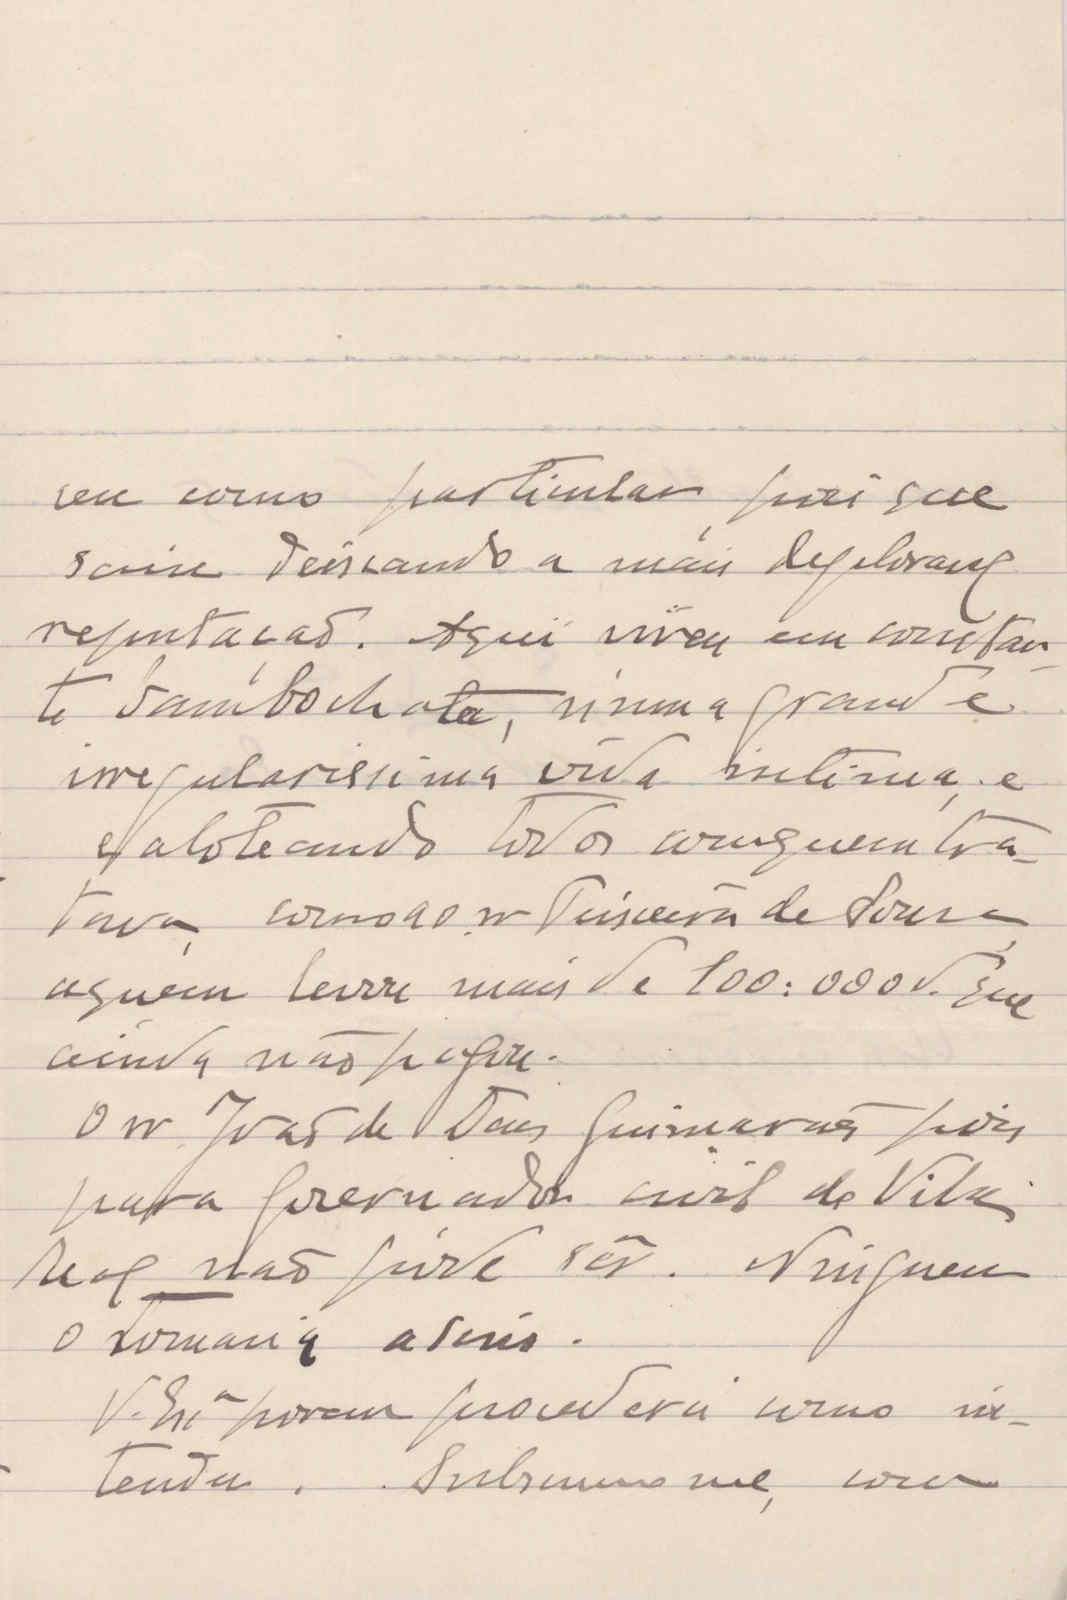 seu como particular, pois que
saiu deixando a máis deploravel
reputação. Aqui viveu em constan-
te bambochata, n'uma grande e
irregularissima vida intima, e
caloteando todos com quem tra-
tava, como ao sr Teixeira de Sousa,
a quem levou mais de 100:000 que
ainda não pagou.
O sr João de Deus Guimarães pois
para governador civil de Vila
Real não póde sêr. Ninguem
o tomaria a serio.
V. Exª porem procederá como in-
tender. Subscrevo me, com